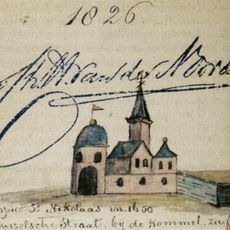 1826
van der Noord
St Nikolaas in 1650
sselsche Straat, bij de Kommel,